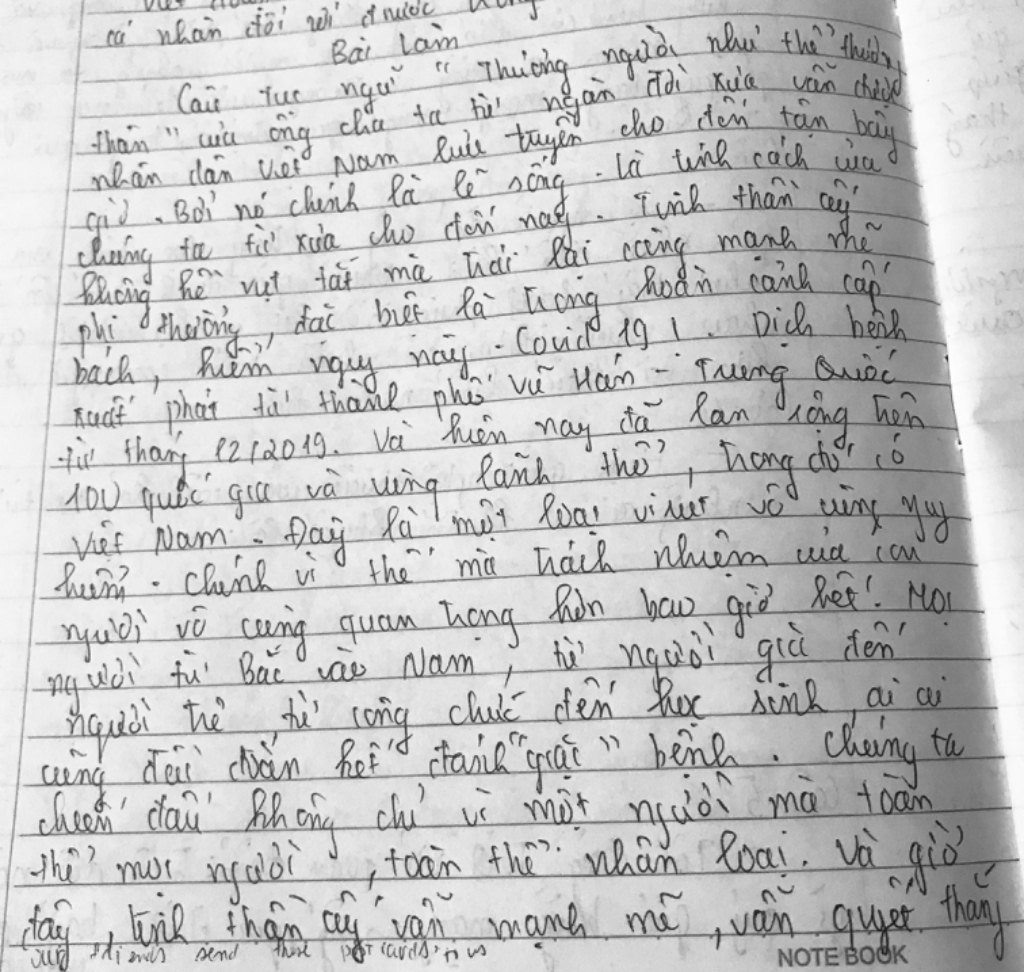 cá nhân đối với đ nước
Bài làm
Câu tục ngữ "Thương người như thể thương
thân" của ông cha ta từ ngàn đời xưa vẫn được
nhân dân Việt Nam lưu truyền cho đến tận bây
giờ. Bởi nó chính là lẽ sống. Là tính cách của
chúng ta từ xưa cho đến nay. Tinh thần ấy
không hề vụt tắt mà trái lại càng mạnh mẽ
phi thường, đặc biệt là trong hoàn cảnh cấp
bách, hiểm nguy này. Covid 19 ! Dịch bệnh
xuất phát từ thành phố Vũ Hán - Trung Quốc
từ tháng 12/2019. Và hiện nay đã lan rộng trên
100 quốc gia và vùng lãnh thổ, trong đó có
Việt Nam. Đây là một loại virut vô cùng nguy
hiểm. Chính vì thế mà trách nhiệm của con
người vô cùng quan trọng hơn bao giờ hết. Mọi
người từ Bắc vào Nam, từ người già đến
người trẻ từ công chức đến học sinh, ai ai
cũng đoàn hết đánh "giặc" bệnh. Chúng ta
chiến đấu không chỉ vì một người mà toàn
thể mọi người, toàn thể nhân loại. Và giờ
đây, tinh thần ấy vẫn mạnh mẽ, vẫn quyết thắng
friends send these postcards to us
NOTE BOOK